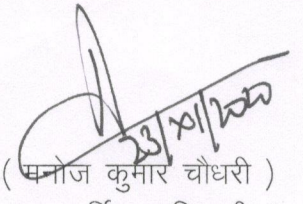 23/XI/2020
( मनोज कुमार चौधरी )